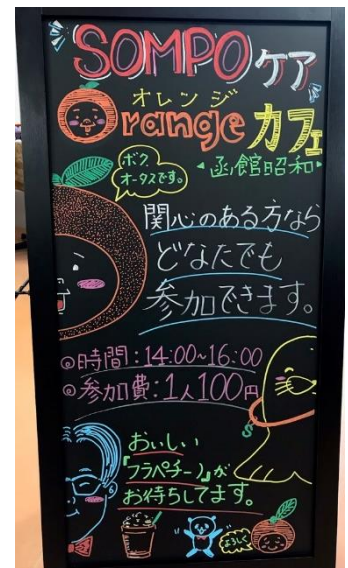 SOMPOケア
オレンジ
Orangeカフェ
函館昭和
ボク
オータスです。
関心のある方なら
どなたでも
参加できます。
◎時間:14:00~16:00
◎参加費:1人100円
おいしい
「フラペチーノ」が
お待ちしてます。
よろしく